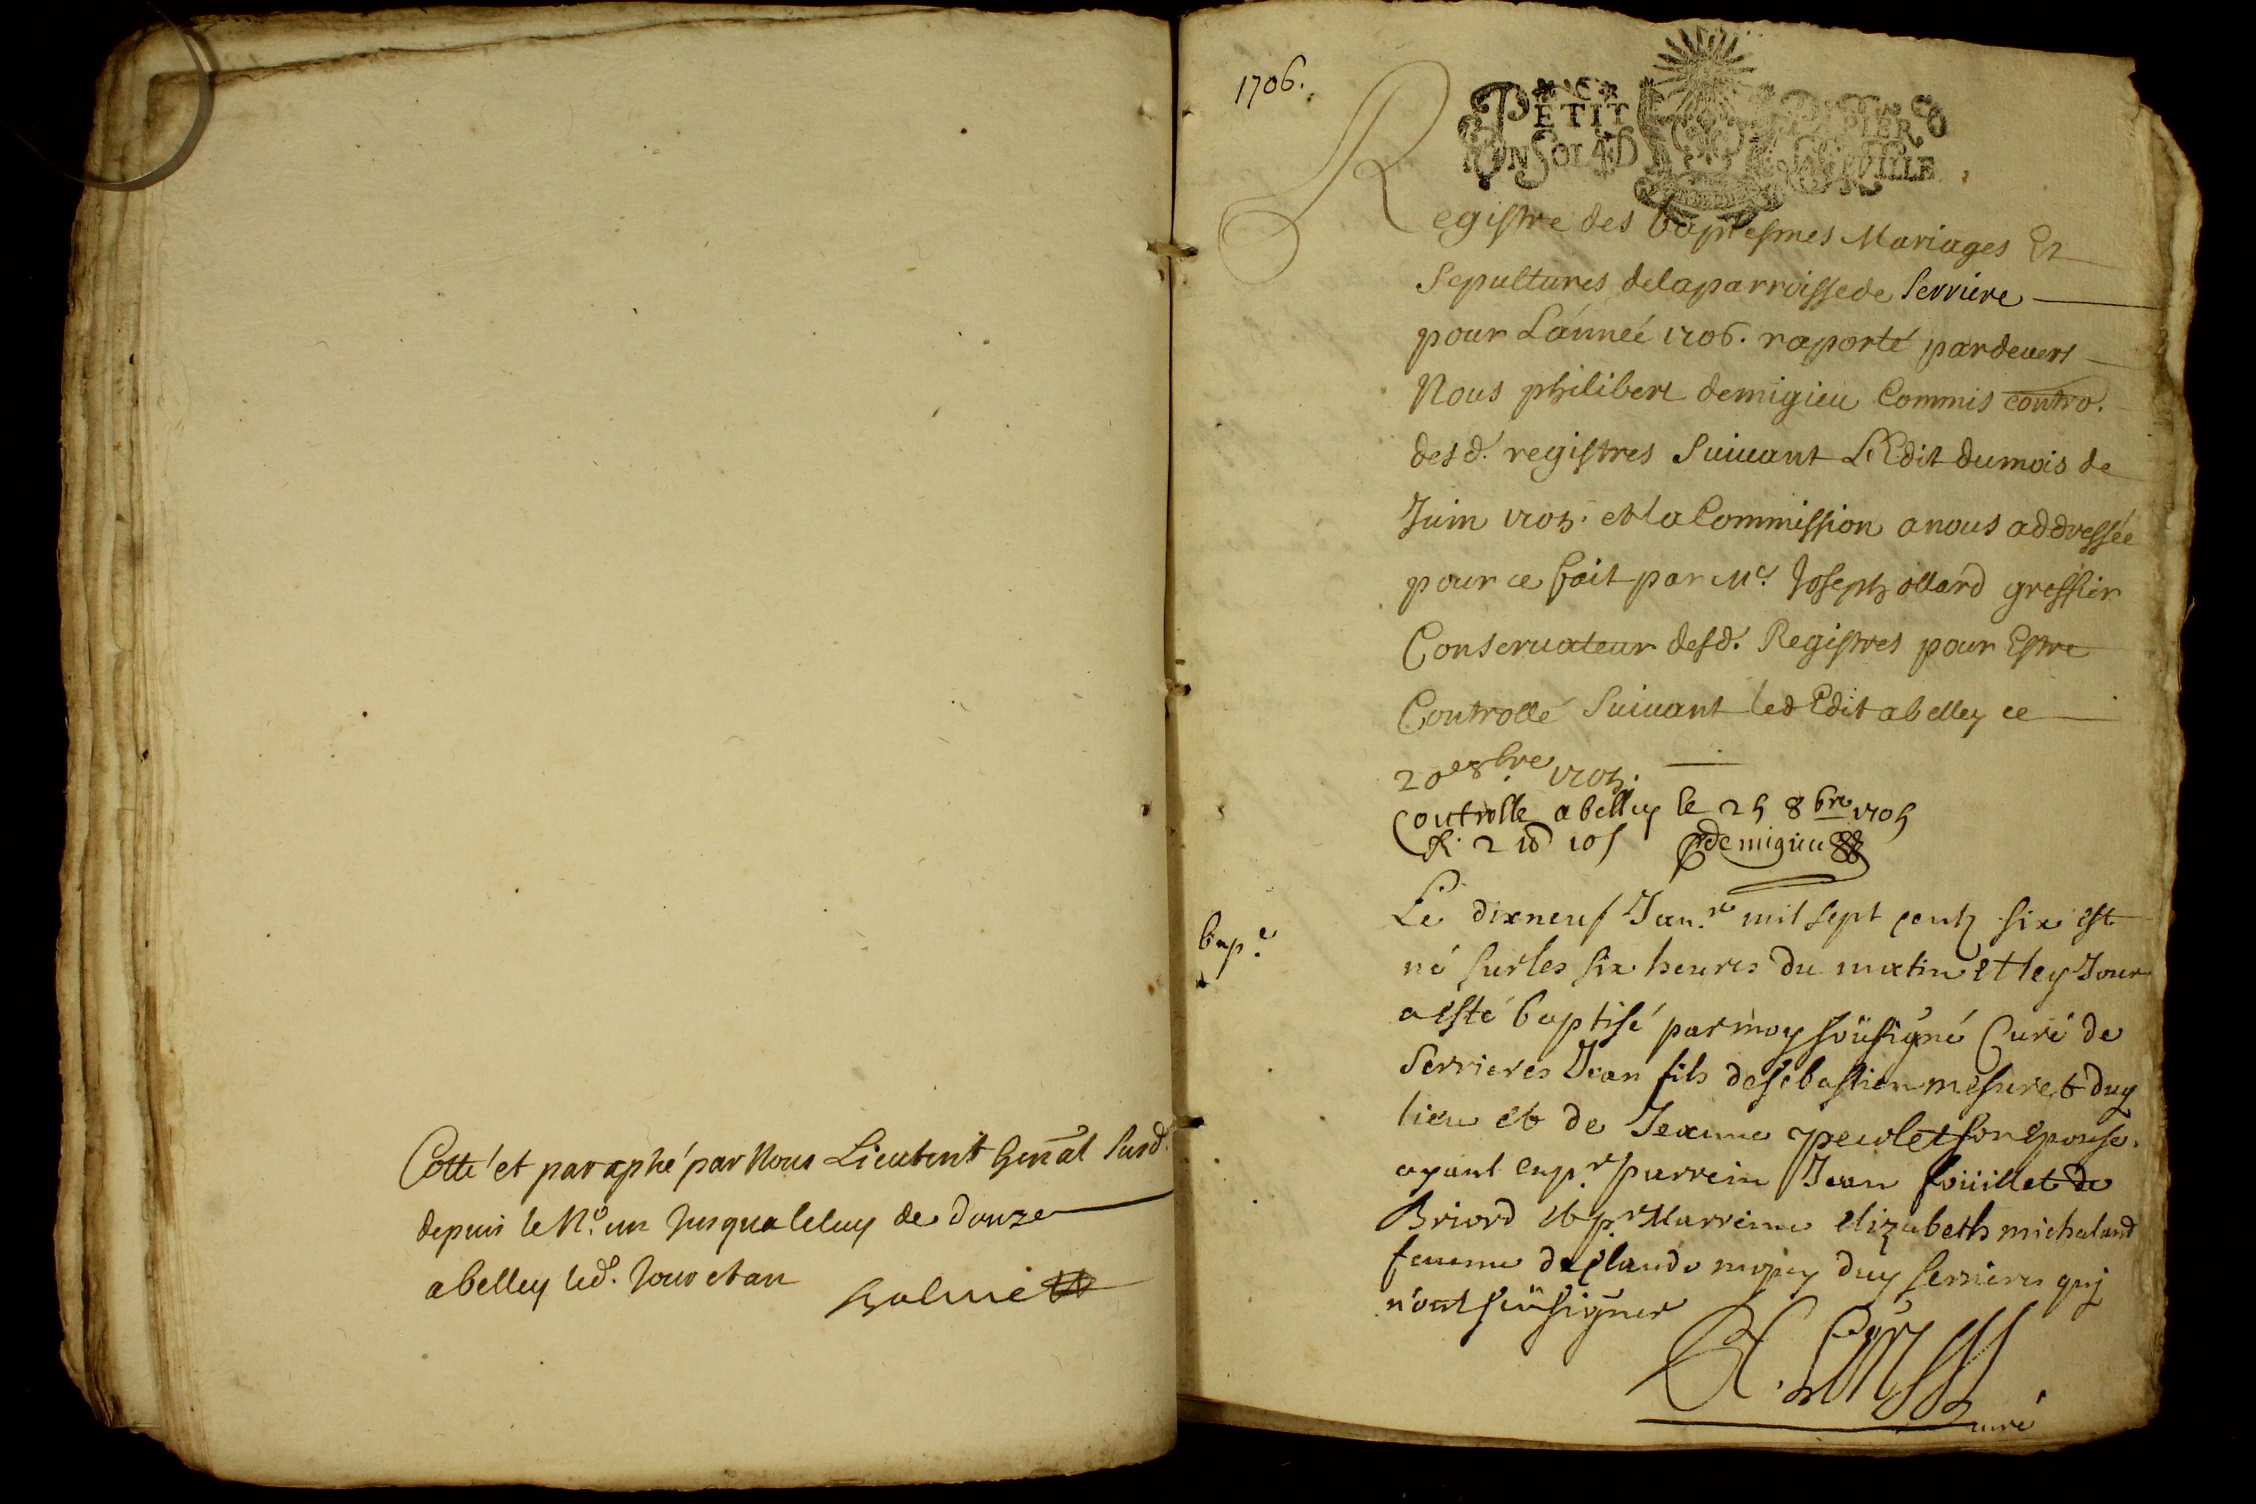 Cotté et paraphé par Nous Lieutent Gen̄al susd.
depuis le N.º un Jusqua Celuy de douze
a belley led. Jour et an
1706.
PETIT PAPIER
UN SOL 4 D LA FEVILLE
Registre des baptesmes Mariages Et
Sepultures de la parroisse de Serriere
pour L'année 1706. raporté pardevers
Nous philibert demigieu Commis contro.
desd. registres Suivant L'Edit du mois de
Juin 1705. et la Commission a nous addressée
pour ce fait par Me. Joseph ollard greffier
Conservateur desd. Registres pour Estre
Controllé Suivant led Edit a belley ce
20e 8bre 1705.
Controlle a belley le 25 8bre 1705
R. 2 lt 10 s demigieu
bap.e
Le dixneuf Jan.re mil sept centz six est
né sur les six heures du matin et ley Jour
a esté baptisé par moy soüsigné Curé de
Serrieres Jean fils de sebastien mesuret duy
lieu et de Jeanne peyolet son epouse.
ayant eu p.r parrein Jean foüillet de
Briord et p.r Marreine elizabeth michaland
femme de Claude mopey duy serrieres quj
n'ont sçeü signer
curé